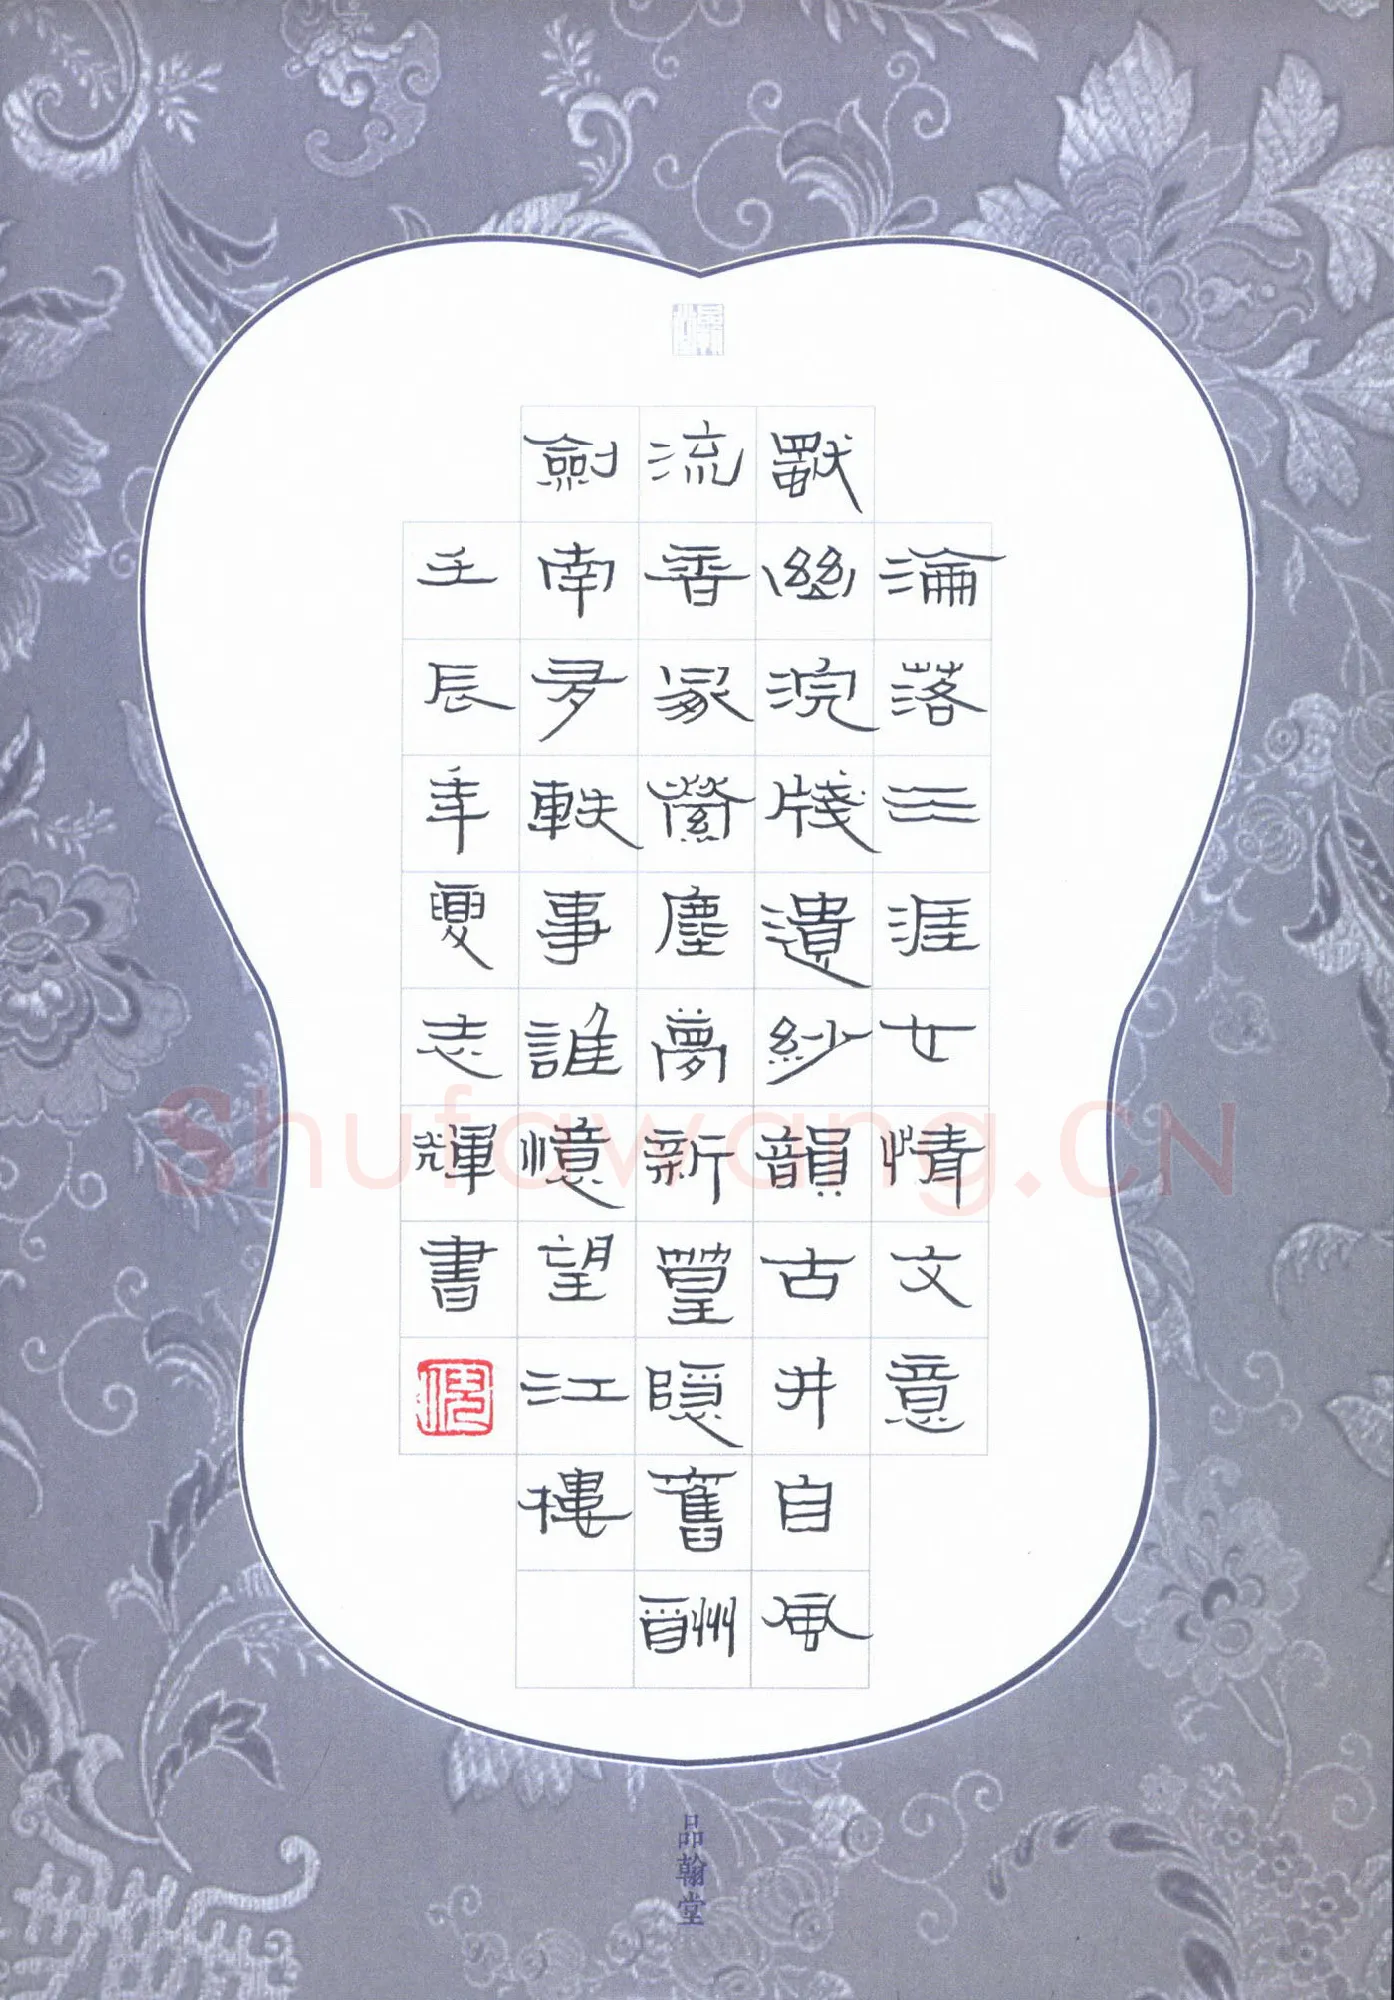 淪落天涯女情文意
獸幽浣牋遺紗韻古井自風
流香冢縈塵夢新篁隱舊酬
劍南多軼事誰憶望江樓
壬辰年夏志輝書
品翰堂
Shufawang.CN